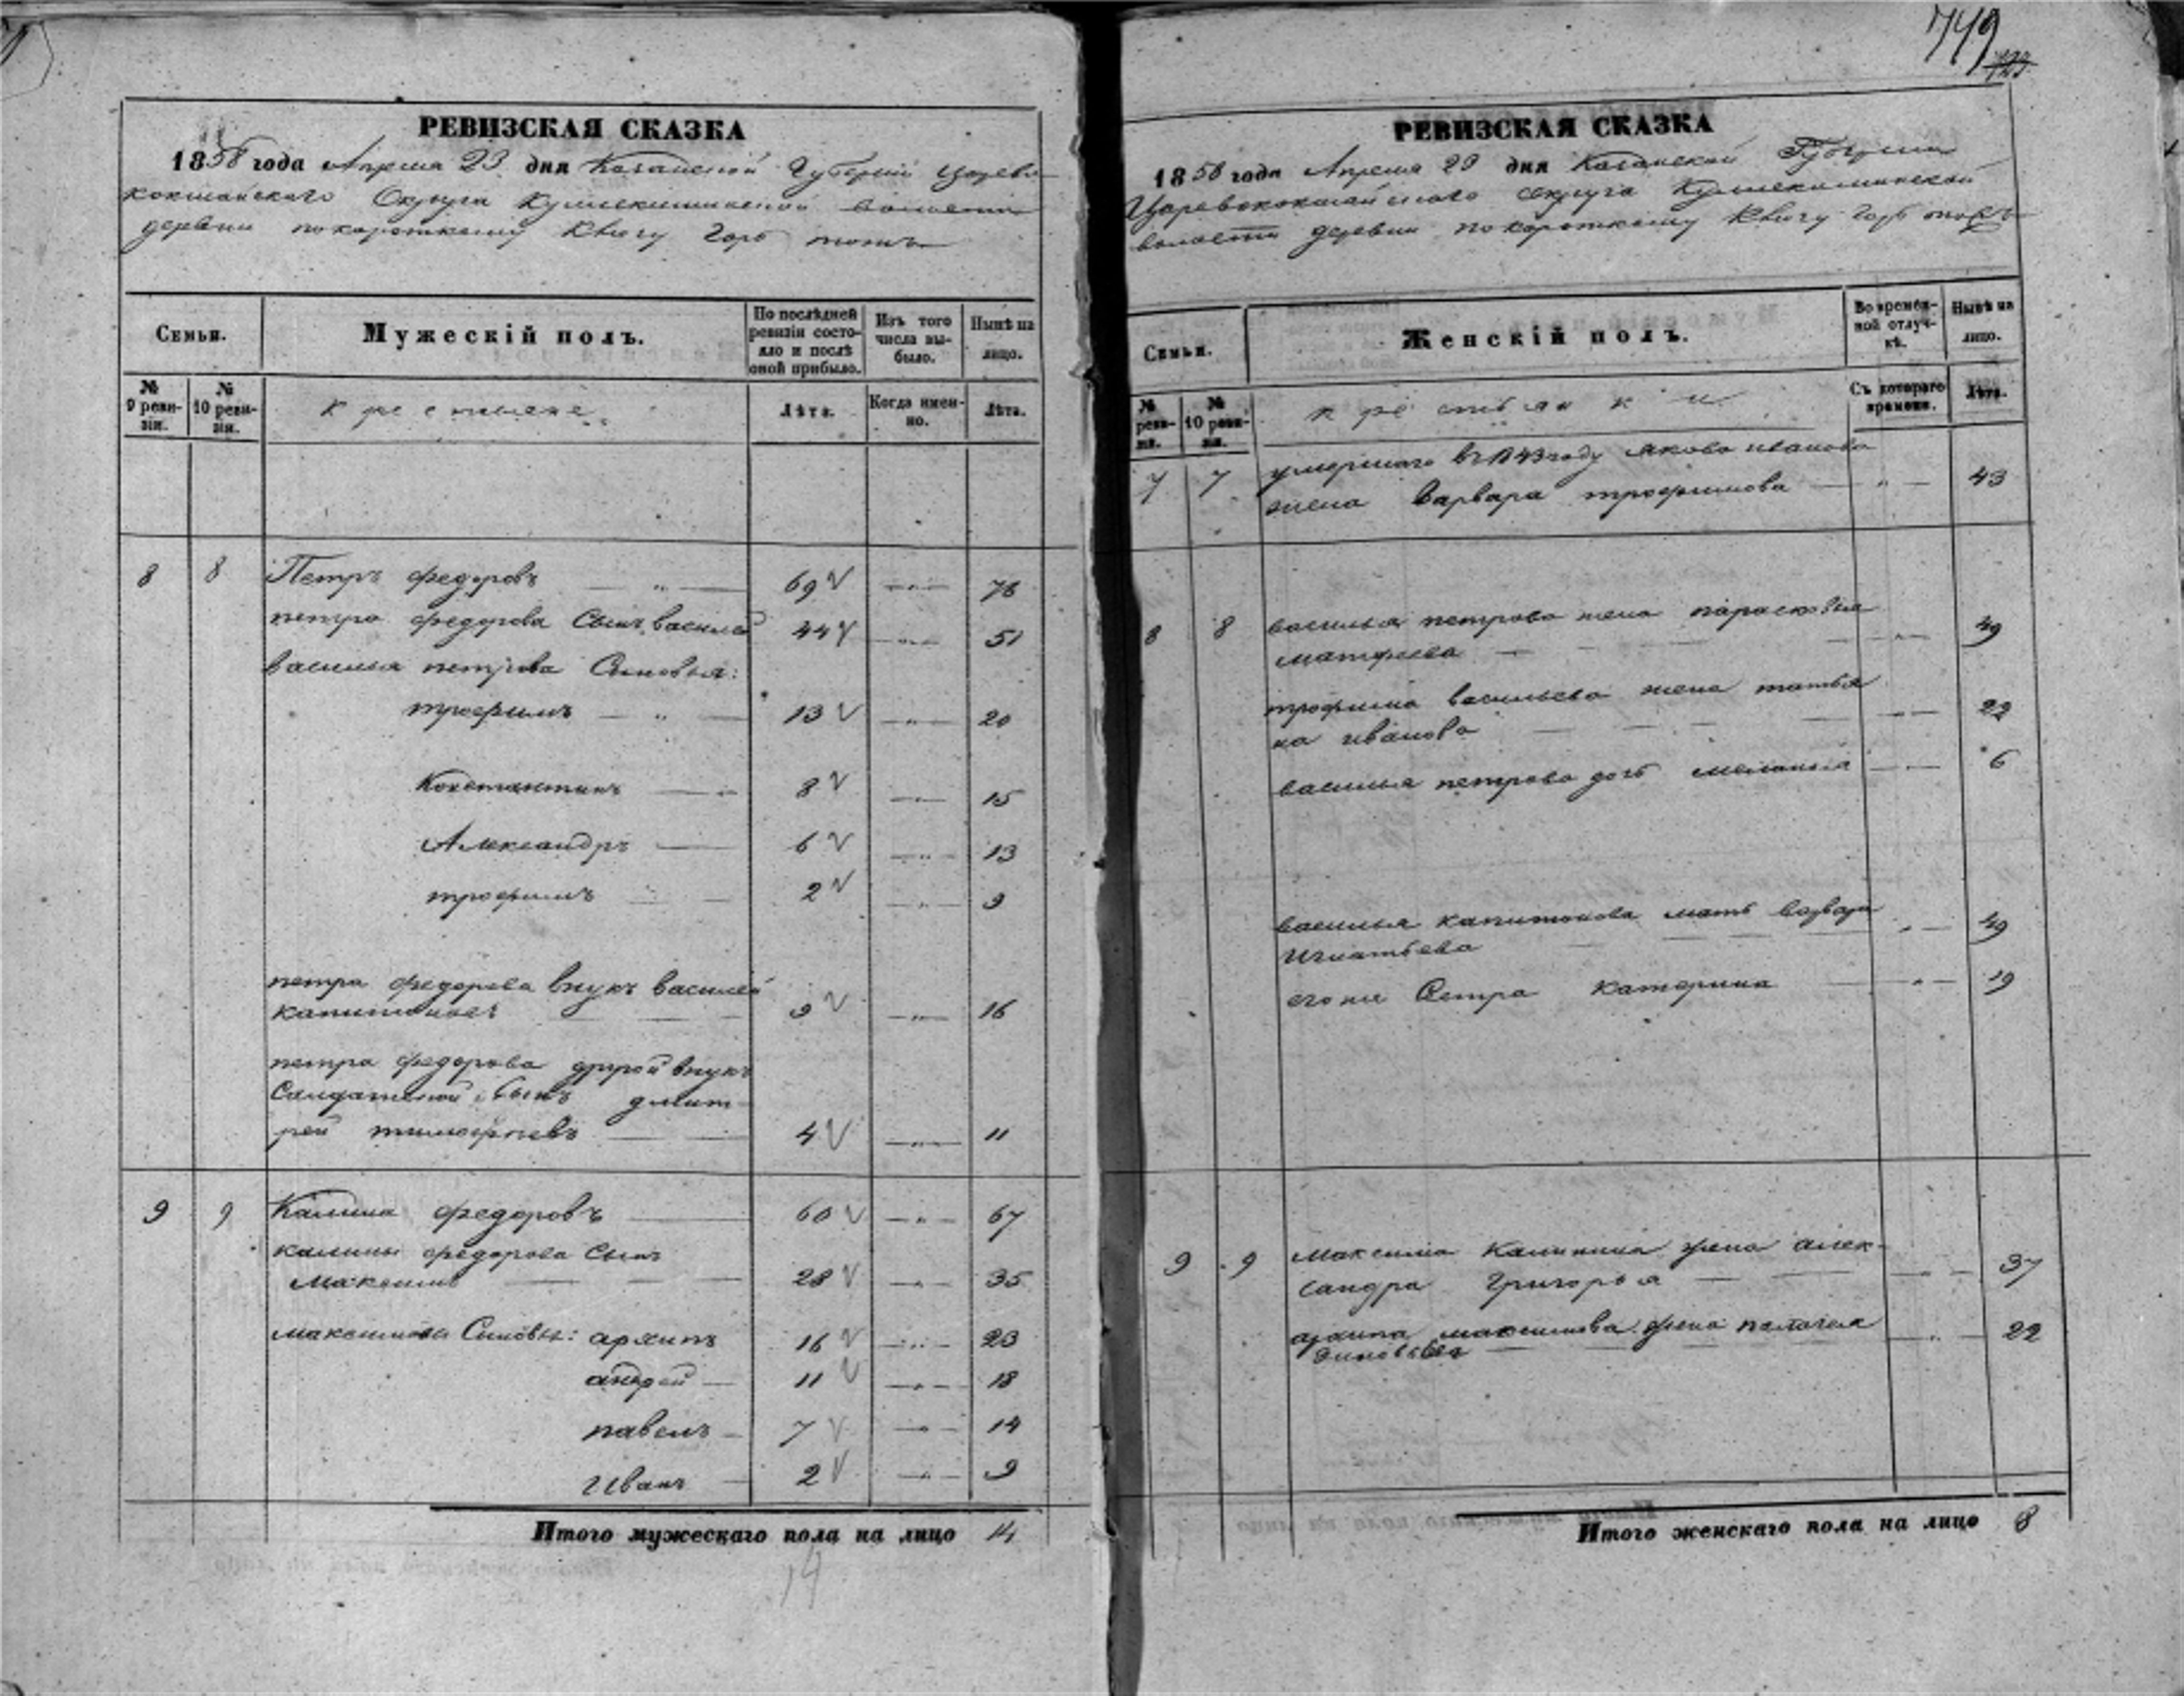 749
723
РЕВИЗСКАЯ СКАЗКА
1858 года Апреля 23 дня Казанской Губерніи Царево
кокшайскаго Округа волости
деревни
Семьи.
Мужескій полъ.
По послѣдней ревизіи состояло и послѣ оной прибыло.
Изъ того числа выбыло.
Нынѣ на лицо.
№ 9 ревизіи.
№ 10 ревизіи.
крестьяне
Лѣта.
Когда именно.
Лѣта.
8 8 Петръ федоровъ — „ — 69 — „ — 76
петра федорова Сынъ василей 44 — „ — 51
василья петрова Сыновья:
трофимъ — „ — 13 — „ — 20
Константинъ — „ 8 — „ — 15
Александръ — 6 — „ — 13
трофимъ — 2 — „ — 9
петра федорова внукъ василей
капитоновъ 9 — „ — 16
петра федорова другой внукъ
Солдатской сынъ дмит
рей тимофѣевъ — 4 — „ — 11
9 9 Калина федоровъ — 60 — „ — 67
калины федорова Сынъ
Максимъ — 28 — „ — 35
максимовы Сыновья: архипъ 16 — „ — 23
андрей — 11 — „ — 18
павелъ — 7 — „ — 14
Иванъ — 2 — „ — 9
Итого мужескаго пола на лицо 14
14
РЕВИЗСКАЯ СКАЗКА
1858 года Апреля 23 дня Казанской Губерніи
Царевококшайскаго округа
волости деревни
Семьи.
Женскій полъ.
Во временной отлучкѣ.
Нынѣ на лицо.
№ ревизіи.
№ 10 ревизіи.
крестьянки
Съ котораго времени.
Лѣта.
7 7 умершаго въ 1843 году якова иванова
жена Варвара трофимова — „ — 43
8 8 василья петрова жена парасковья
матфеева — „ — 49
трофима васильева жена татья
на иванова — 22
василья петрова дочь меланья — 6
василья капитонова мать варвара
Игнатьева — „ — 49
его же Сестра Катерина — „ — 19
9 9 максима Калинина жена алек-
сандра Григорья — 37
архипа максимова жена
зиновьева — „ — 22
Итого женскаго пола на лицо 8